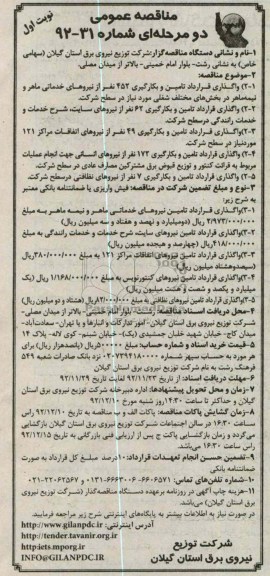 مناقصه عمومی
نوبت اول
دو مرحله‌ای شماره ۳۱-۹۲
۱-نام و نشانی دستگاه مناقصه گزار:شرکت توزیع نیروی برق استان گیلان (سهامی
خاص) به نشانی رشت- بلوار امام خمینی- بالاتر از میدان مصلی.
۲-موضوع مناقصه:
۲-۱) واگذاری قرارداد تامین و بکارگیری ۴۵۲ نفر از نیروهای خدماتی ماهر و
نیمه‌ماهر در بخش‌های مختلف شغلی مورد نیاز در سطح شرکت.
۲-۲) واگذاری قرارداد تامین و بکارگیری ۶۲ نفر از نیروهای سایت، شرح خدمات و
خدمات رانندگی درسطح شرکت.
۲-۳) واگذاری قرارداد تامین و بکارگیری ۴۹ نفر از نیروهای اتفاقات مراکز ۱۲۱
موردنیاز در سطح شرکت.
۲-۴) واگذاری قرارداد تامین و بکارگیری ۱۷۳ نفر از نیروهای انسانی جهت انجام عملیات
مربوط به قرائت کنتور و توزیع قبوض برق مشترکین مصارف عادی در سطح شرکت.
۲-۵) واگذاری قرارداد تامین و بکارگیری ۷ نفر از نیروهای نظافتی درسطح شرکت.
۳-نوع و مبلغ تضمین شرکت در مناقصه: فیش واریزی یا ضمانتنامه بانکی معتبر
به شرح زیر:
۳-۱)واگذاری قرارداد تامین نیروهای خدماتی ماهر و نیمه ماهر به مبلغ
۲/۹۷۳/۰۰۰/۰۰۰ ریال (دومیلیارد و نهصد و هفتاد و سه میلیون ریال)
۳-۲)واگذاری قرارداد تامین نیروهای سایت، شرح خدمات و خدمات رانندگی به مبلغ
۴۱۸/۰۰۰/۰۰۰ ریال (چهارصد و هیجده میلیون ریال)
۳-۳)واگذاری قرارداد تامین نیروهای اتفاقات مراکز ۱۲۱ به مبلغ ۳۸۰/۰۰۰/۰۰۰ ریال
(سیصدوهشتاد میلیون ریال)
۳-۴)واگذاری قرارداد تامین نیروهای کنتورنویس به مبلغ ۱/۱۶۸/۰۰۰/۰۰۰ ریال (یک
میلیارد و یکصد و شصت و هشت میلیون ریال)
۳-۵)واگذاری قرارداد تامین نیروهای نظافتی به مبلغ ۸۲/۰۰۰/۰۰۰ ریال (هشتاد و دو میلیون ریال)
۴-محل دریافت اسناد مناقصه: رشت- بلوار امام خمینی- بالاتر از میدان مصلی-
شرکت توزیع نیروی برق استان گیلان- امور تدارکات و انبارها و یا تهران- سعادت‌آباد-
میدان کاج- خیابان شهید خلیل حسینیدی (یکم)- خیابان شبنو- کوی لاله- پلاک ۱۴
۵-قیمت خرید اسناد و شماره حساب: مبلغ ۵۰۰۰۰۰ ریال (پانصدهزار ریال) برای
هر مورد به حساب سپهر شماره نزد بانک صادرات شعبه ۵۴۹
فرهنگ رشت به نام شرکت توزیع نیروی برق استان گیلان
۶-مهلت دریافت اسناد: از تاریخ ۹۲/۱۱/۲۳ لغایت تاریخ ۹۲/۱۱/۲۹
۷-زمان و محل تحویل پیشنهادها: اداره دبیرخانه شرکت توزیع نیروی برق استان
گیلان و حداکثر تا ساعت ۱۴:۳۰ روز شنبه مورخ ۹۲/۱۲/۱۰
۸-زمان گشایش پاکات مناقصه: پاکات الف و ب مناقصه به تاریخ ۹۲/۱۲/۱۰ راس
ساعت ۱۶:۳۰ در سالن اجتماعات شرکت توزیع نیروی برق استان گیلان بازگشایی
می‌گردد و زمان بازگشایی پاکت ج پس از ارزیابی فنی بازرگانی به تاریخ ۹۲/۱۲/۱۵
راس ساعت ۱۶:۳۰ می‌باشد.
۹-تضمین حسن انجام تعهدات قرارداد: ۱۰ درصد مبلغ کل قرارداد به صورت
ضمانتنامه بانکی
۱۰-شماره تلفن‌های تماس: ۰۱۳۱-۶۶۶۳۰۰۶-۶۶۶۰۵۷۱ و ۰۲۱-۲۲۰۶۲۵۶۷
۱۱-هزینه چاپ آگهی در روزنامه برعهده دستگاه مناقصه‌گذار (شرکت توزیع نیروی
برق استان گیلان) می‌باشد.
در صورت نیاز به اطلاعات بیشتر به پایگاه‌های اینترنتی شرح زیر مراجعه فرمایید.
آدرس اینترنتی: http://www.gilanpdc.ir
http://tender.tavanir.org.ir
http:iets.mporg.ir
INFO@GILANPDC.IR
شرکت توزیع
نیروی برق استان گیلان